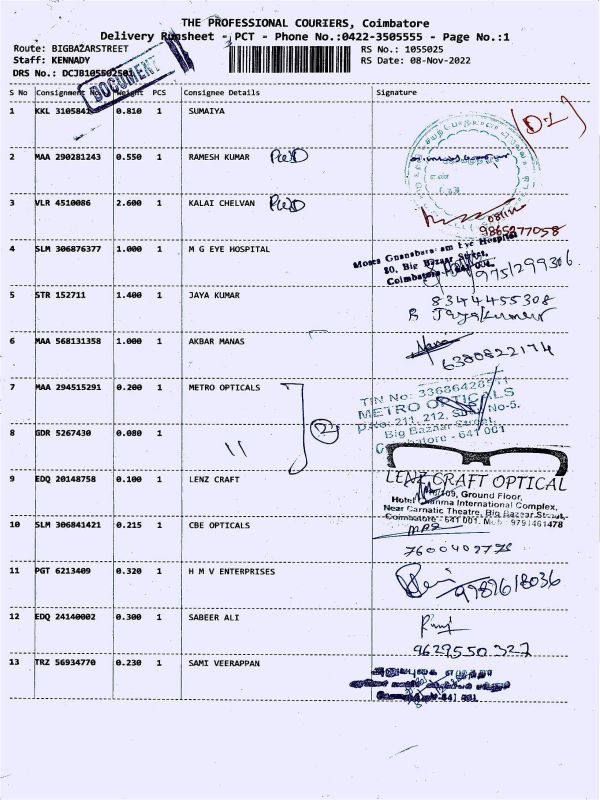 THE PROFESSIONAL COURIERS, Coimbatore
Delivery Runsheet - PCT - Phone No.:0422-3505555 - Page No.:1
Route: BIGBAZARSTREET
RS No.: 1055025
Staff: KENNADY
RS Date: 08-Nov-2022
DRS No.: DCJB105502501
DOCUMENT
S No Consignment No Weight PCS Consignee Details Signature
1 KKL 3105841 0.810 1 SUMAIYA
2 MAA 290281243 0.550 1 RAMESH KUMAR
3 VLR 4510086 2.600 1 KALAI CHELVAN
9865277058
4 SLM 306876377 1.000 1 M G EYE HOSPITAL
80, Big Bazaar Street,
Coimbatore - 641 001.
9751299306
5 STR 152711 1.400 1 JAYA KUMAR
8344455308
R Jayakumar
6 MAA 568131358 1.000 1 AKBAR MANAS
6380822174
7 MAA 294515291 0.200 1 METRO OPTICALS
METRO OPTICALS
Big Bazaar Street,
Coimbatore - 641 001
8 GDR 5267430 0.080 1 "
2
9 EDQ 20148758 0.100 1 LENZ CRAFT
LENZ CRAFT OPTICAL
Ground Floor,
International Complex,
Near Carnatic Theatre, Big Bazaar Street,
Coimbatore - 641 001. Mob : 9791461478
10 SLM 306841421 0.215 1 CBE OPTICALS
11 PGT 6213409 0.320 1 H M V ENTERPRISES
12 EDQ 24140002 0.300 1 SABEER ALI
9629550327
13 TRZ 56934770 0.230 1 SAMI VEERAPPAN